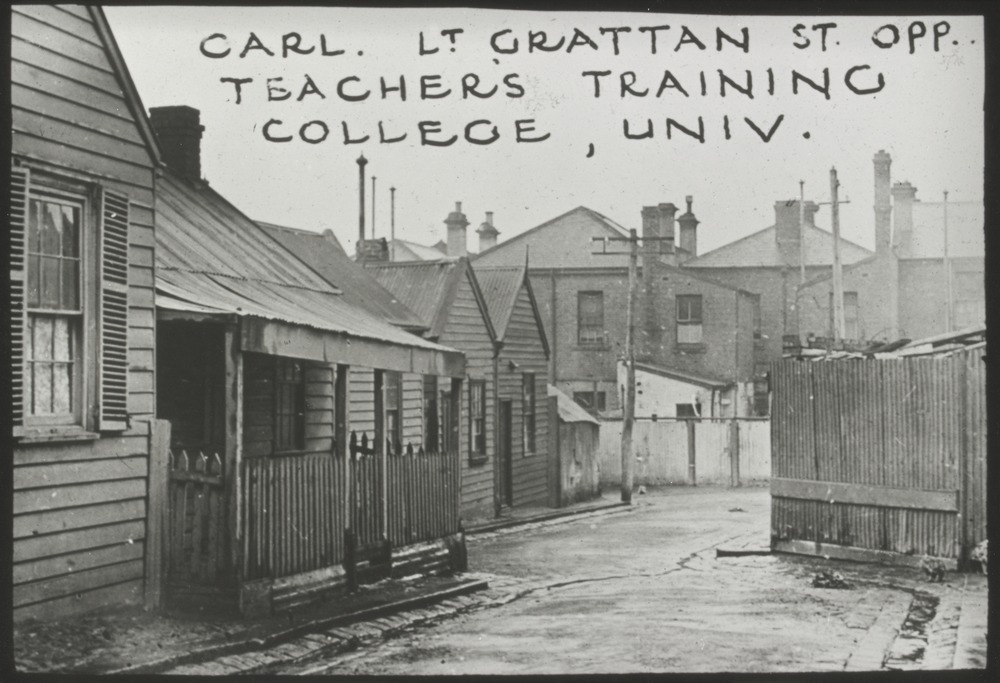 CARL. LT GRATTAN ST. OPP.
TEACHERS TRAINING
COLLEGE, UNIV.